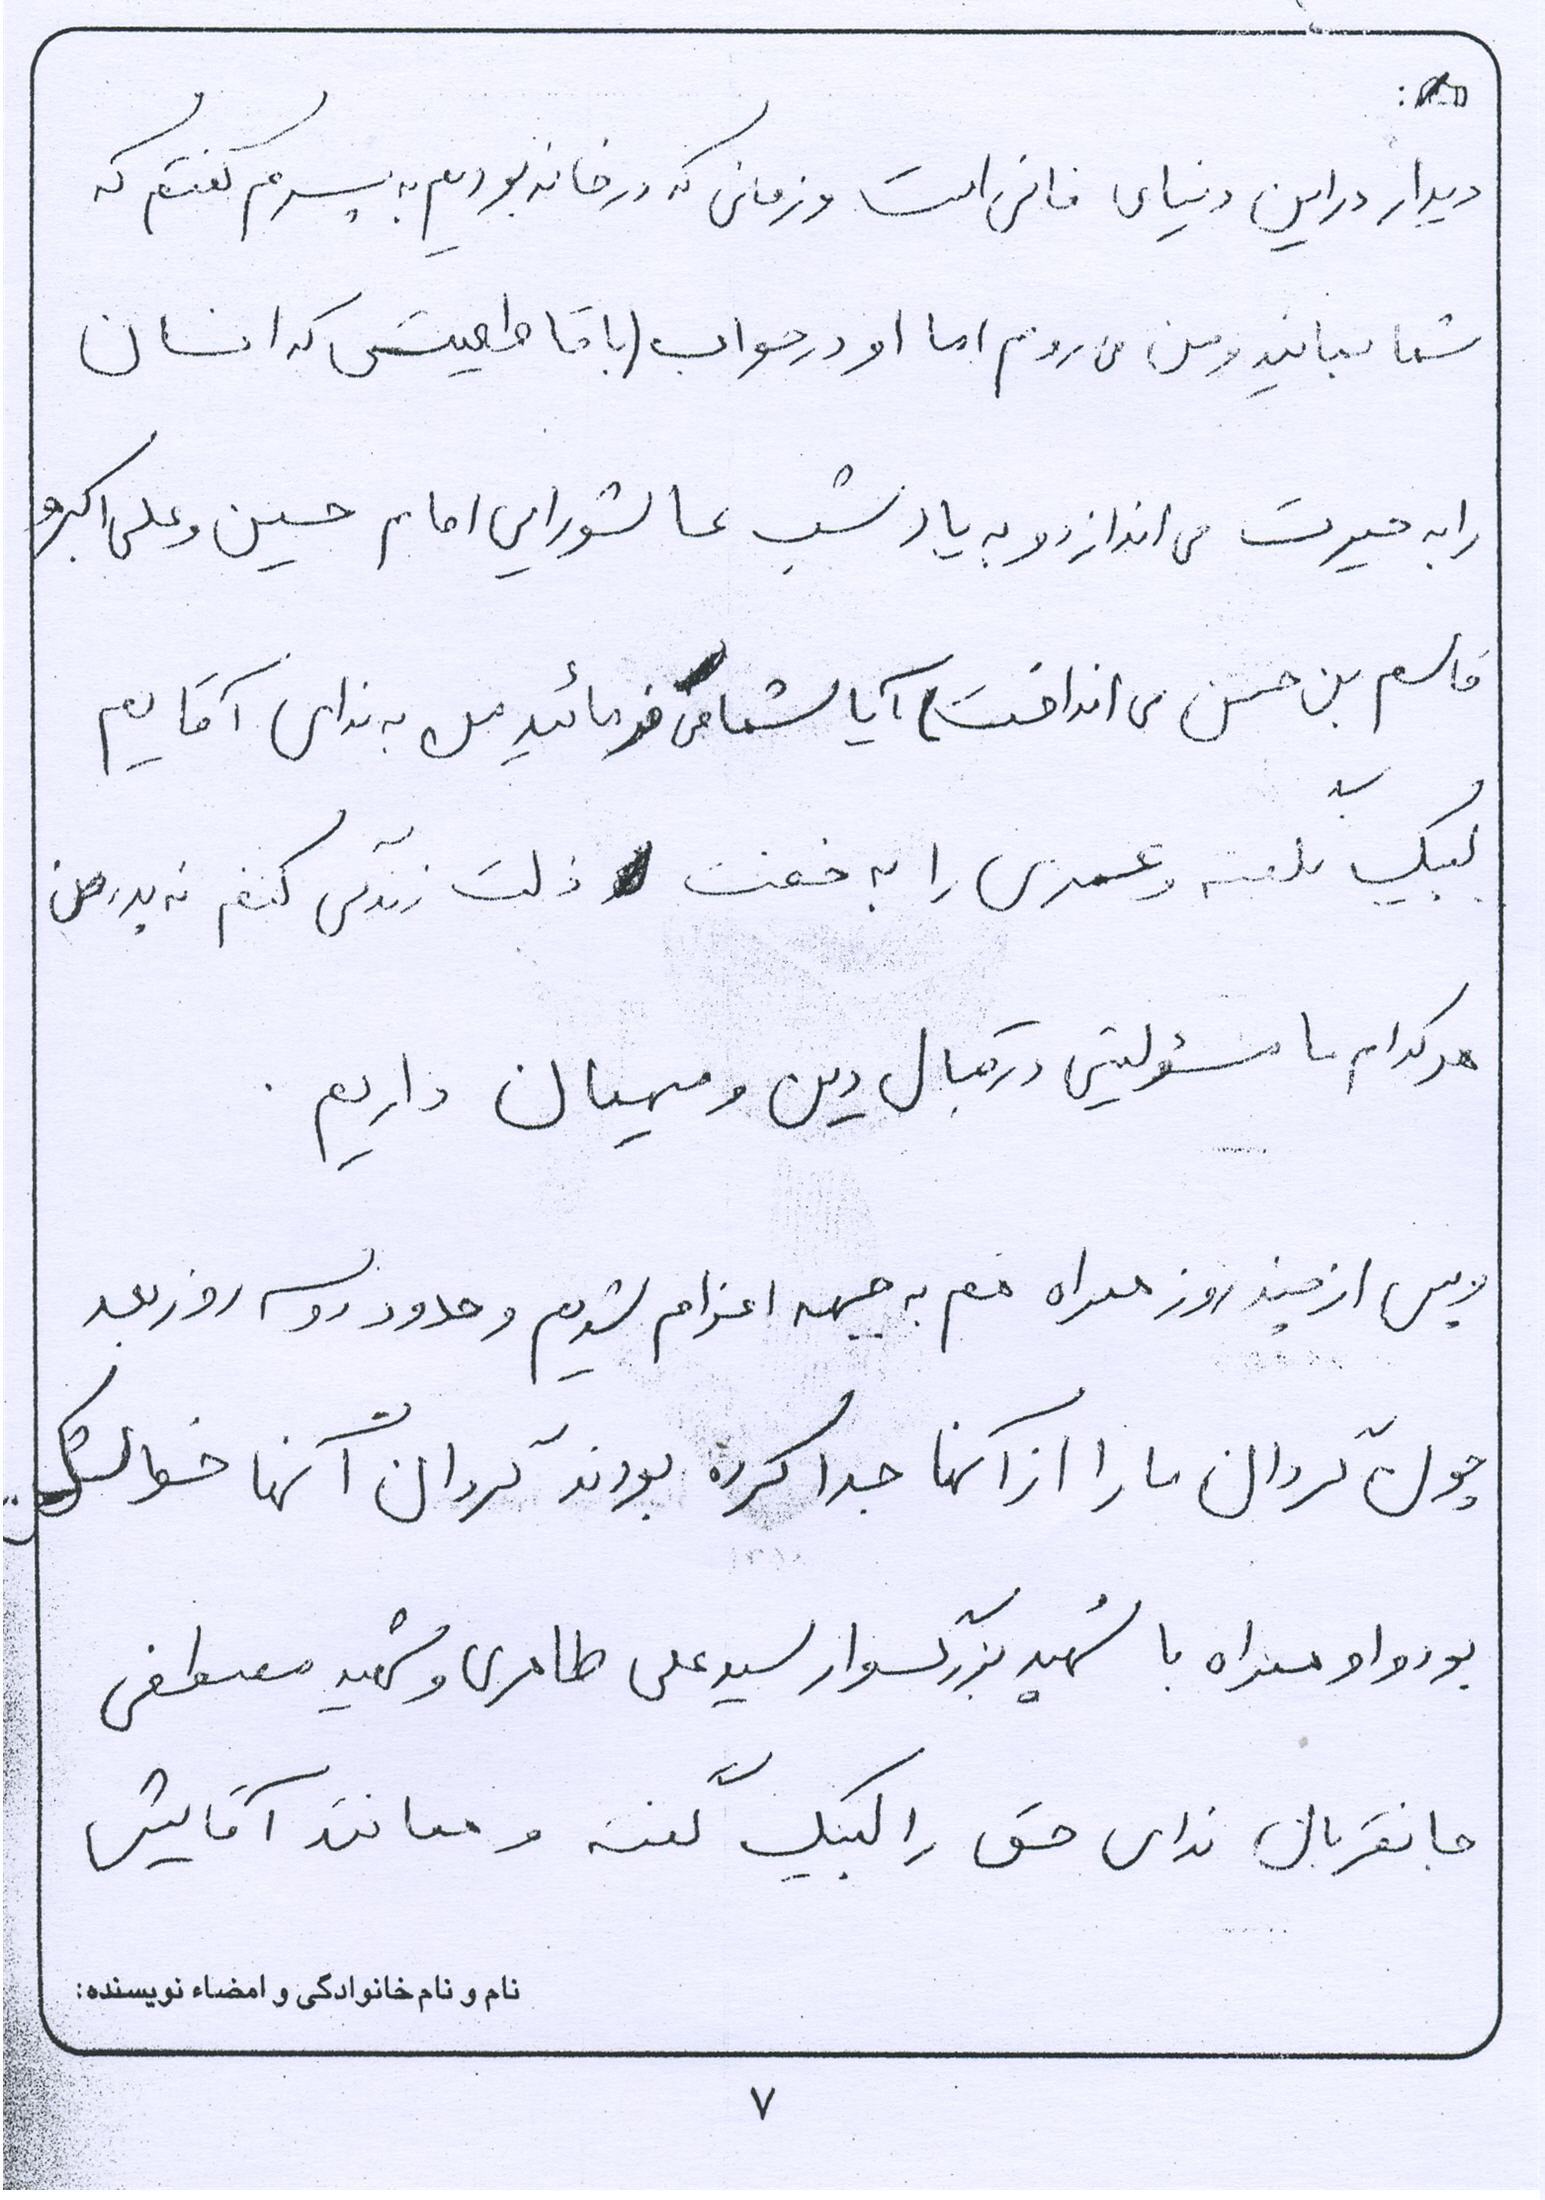 دیدار در این دنیای فانی است و زمانی که در خانه بودیم به پسرم گفتم که
شما بمانید و من می روم اما او در جواب (با قاطعیتی که انسان
را به حیرت می اندازد و به یاد شب عاشورای امام حسین و علی اکبر و
قاسم بن حسن می انداخت) آیا شما می فرمائید من به ندای آقایم
لبیک نگفته و عمری را به خفت ذلت زندگی کنم نه پدر من
هر کدام ما مسئولیتی در قبال دین و میهنمان داریم .
و پس از چند روز همراه هم به جبهه اعزام شدیم و حدود دو سه روز بعد
چون گردان ما را از آنها جدا کرده بودند گردان آنها خط
بود و او همراه با شهید بزرگسوار سید علی طاهری و شهید مصطفی
جانقربان ندای حق را لبیک گفته و همانند آقایش
نام و نام خانوادگی و امضاء نویسنده:
۷